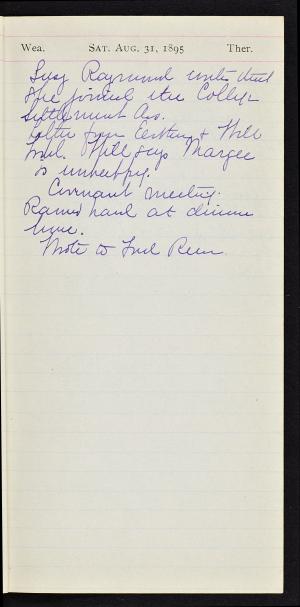 Wea. SAT. AUG. 31, 1895 Ther.
Susy Raymond writes that
she joined the College
Settlement Ass.
Letter from & Will
Will says Margee
is unhappy.
Covenant meeting.
Rained hard at dinner
time.
Wrote to